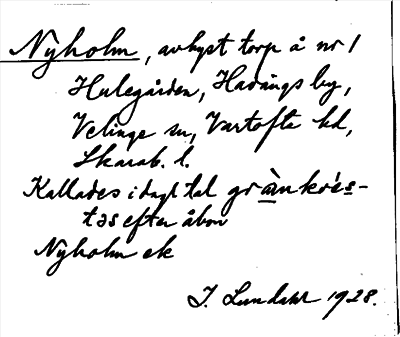 Nyholm, avhyst torp å nr 1
Hulegården, Havängs by,
Velinge sn, Vartofta hd,
Skarab. l.
Kallades i dagl tal grànkrés-
tas efter åbon
Nyholm ek
J. Lundahl 1928.